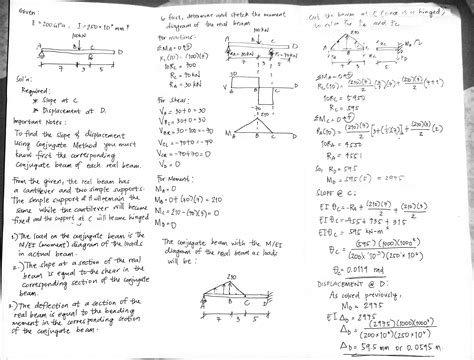 Given:
E = 200 GPa, I = 250 × 10⁶ mm⁴
100 kN
A B C D
7 3 5
Sol'n:
Required:
* Slope at C
* Displacement at D.
Important Notes:
To find the slope & displacement
using Conjugate Method you must
know first the corresponding
Conjugate beam of each real beam.
From the given, the real beam has
a cantilever and two simple supports.
The simple support A will remain the
same while the cantilever will become
fixed and the support at C will become hinged
1.) The load on the conjugate beam is the
M/EI (moment) diagram of the loads
in actual beam.
2.) The slope at a section of the real
beam is equal to the shear in the
corresponding section of the conjugate
beam.
3.) The deflection at a section of the
real beam is equal to the bending
moment in the corresponding section
of the conjugate beam.
• first, determine and sketch the moment
diagram of the real beam
For reactions:
ΣMA = 0
RC (10) = (100)(7)
10RC = 700
RC = 70 kN
RA = 30 kN
100 kN
A B C D
7 3 5
For Shear:
VA = 30 + 0 = 30
VBL = 30 + 0 = 30
VBR = 30 - 100 = -70
VCL = -70 + 0 = -70
VCR = -70 + 70 = 0
VD = 0
For Moment:
MA = 0
MB = 0 + (30)(7) = 210
MC = 210 - (70)(3) = 0
MD = 0
The conjugate beam with the M/EI
diagram of the real beam as loads
will be:
210
A B C D
7 3 5
Cut the beam at C (since it is hinged)
to solve for RA and RC.
ΣMA = 0
10RC = 5950
RC = 595
ΣMC = 0
10RA = 4550
RA = 455
So, RD = 595
MD = 595 (5) = 2975
SLOPE @ C:
EIθC = -455 + 735 + 315
EIθC = 595 kN-m²
θC = (595)(1000)(1000²)
(200×10³)(250×10⁶)
θC = 0.0119 rad
DISPLACEMENT @ D:
As solved previously,
MD = 2975
EIΔD = 2975
ΔD = (2975)(1000)(1000³)
(200×10³)(250×10⁶)
ΔD = 59.5 mm or 0.0595 m